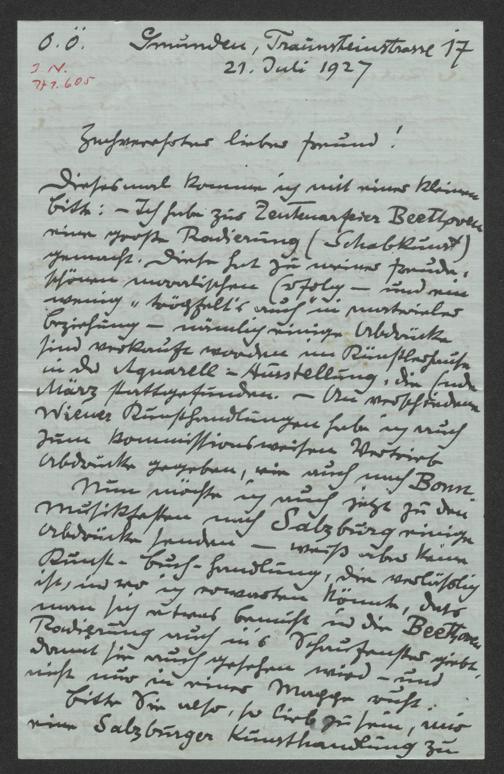 O. Ö. Gmunden, Traunsteinstrasse 17
21. Juli 1927
I. N.
171.605
Hochverehrter lieber Freund!
Diesesmal komme ich mit einer kleinen
Bitte: – Ich habe zur Zentenarfeier Beethoven
eine große Radierung (Schabkunst)
gemacht. Diese hat zu meiner Freude,
schönen moralischen Erfolg – und ein
wenig „tröpfelt's auch" in materieller
Beziehung – nämlich einige Abdrücke
sind verkauft worden im Künstlerhause
in der Aquarell-Ausstellung, die Ende
März stattgefunden. – An verschiedene
Wiener Kunsthandlungen habe ich auch
zum kommissionsweisen Vertrieb
Abdrücke gegeben, wie auch nach Bonn.
Nun möchte ich auch jetzt zu den
Musikfesten nach Salzburg einige
Abdrücke senden – weiß aber keine
Kunst-Buch-Handlung, die verläßlich
ist, in der ich erwarten könnte, dass
man sich etwas bemüht u die Beethoven
Radierung auch in's Schaufenster giebt,
damit sie auch gesehen wird – und
nicht nur in einer Mappe ruht.
Bitte Sie also, so lieb zu sein, mir
eine Salzburger Kunsthandlung zu